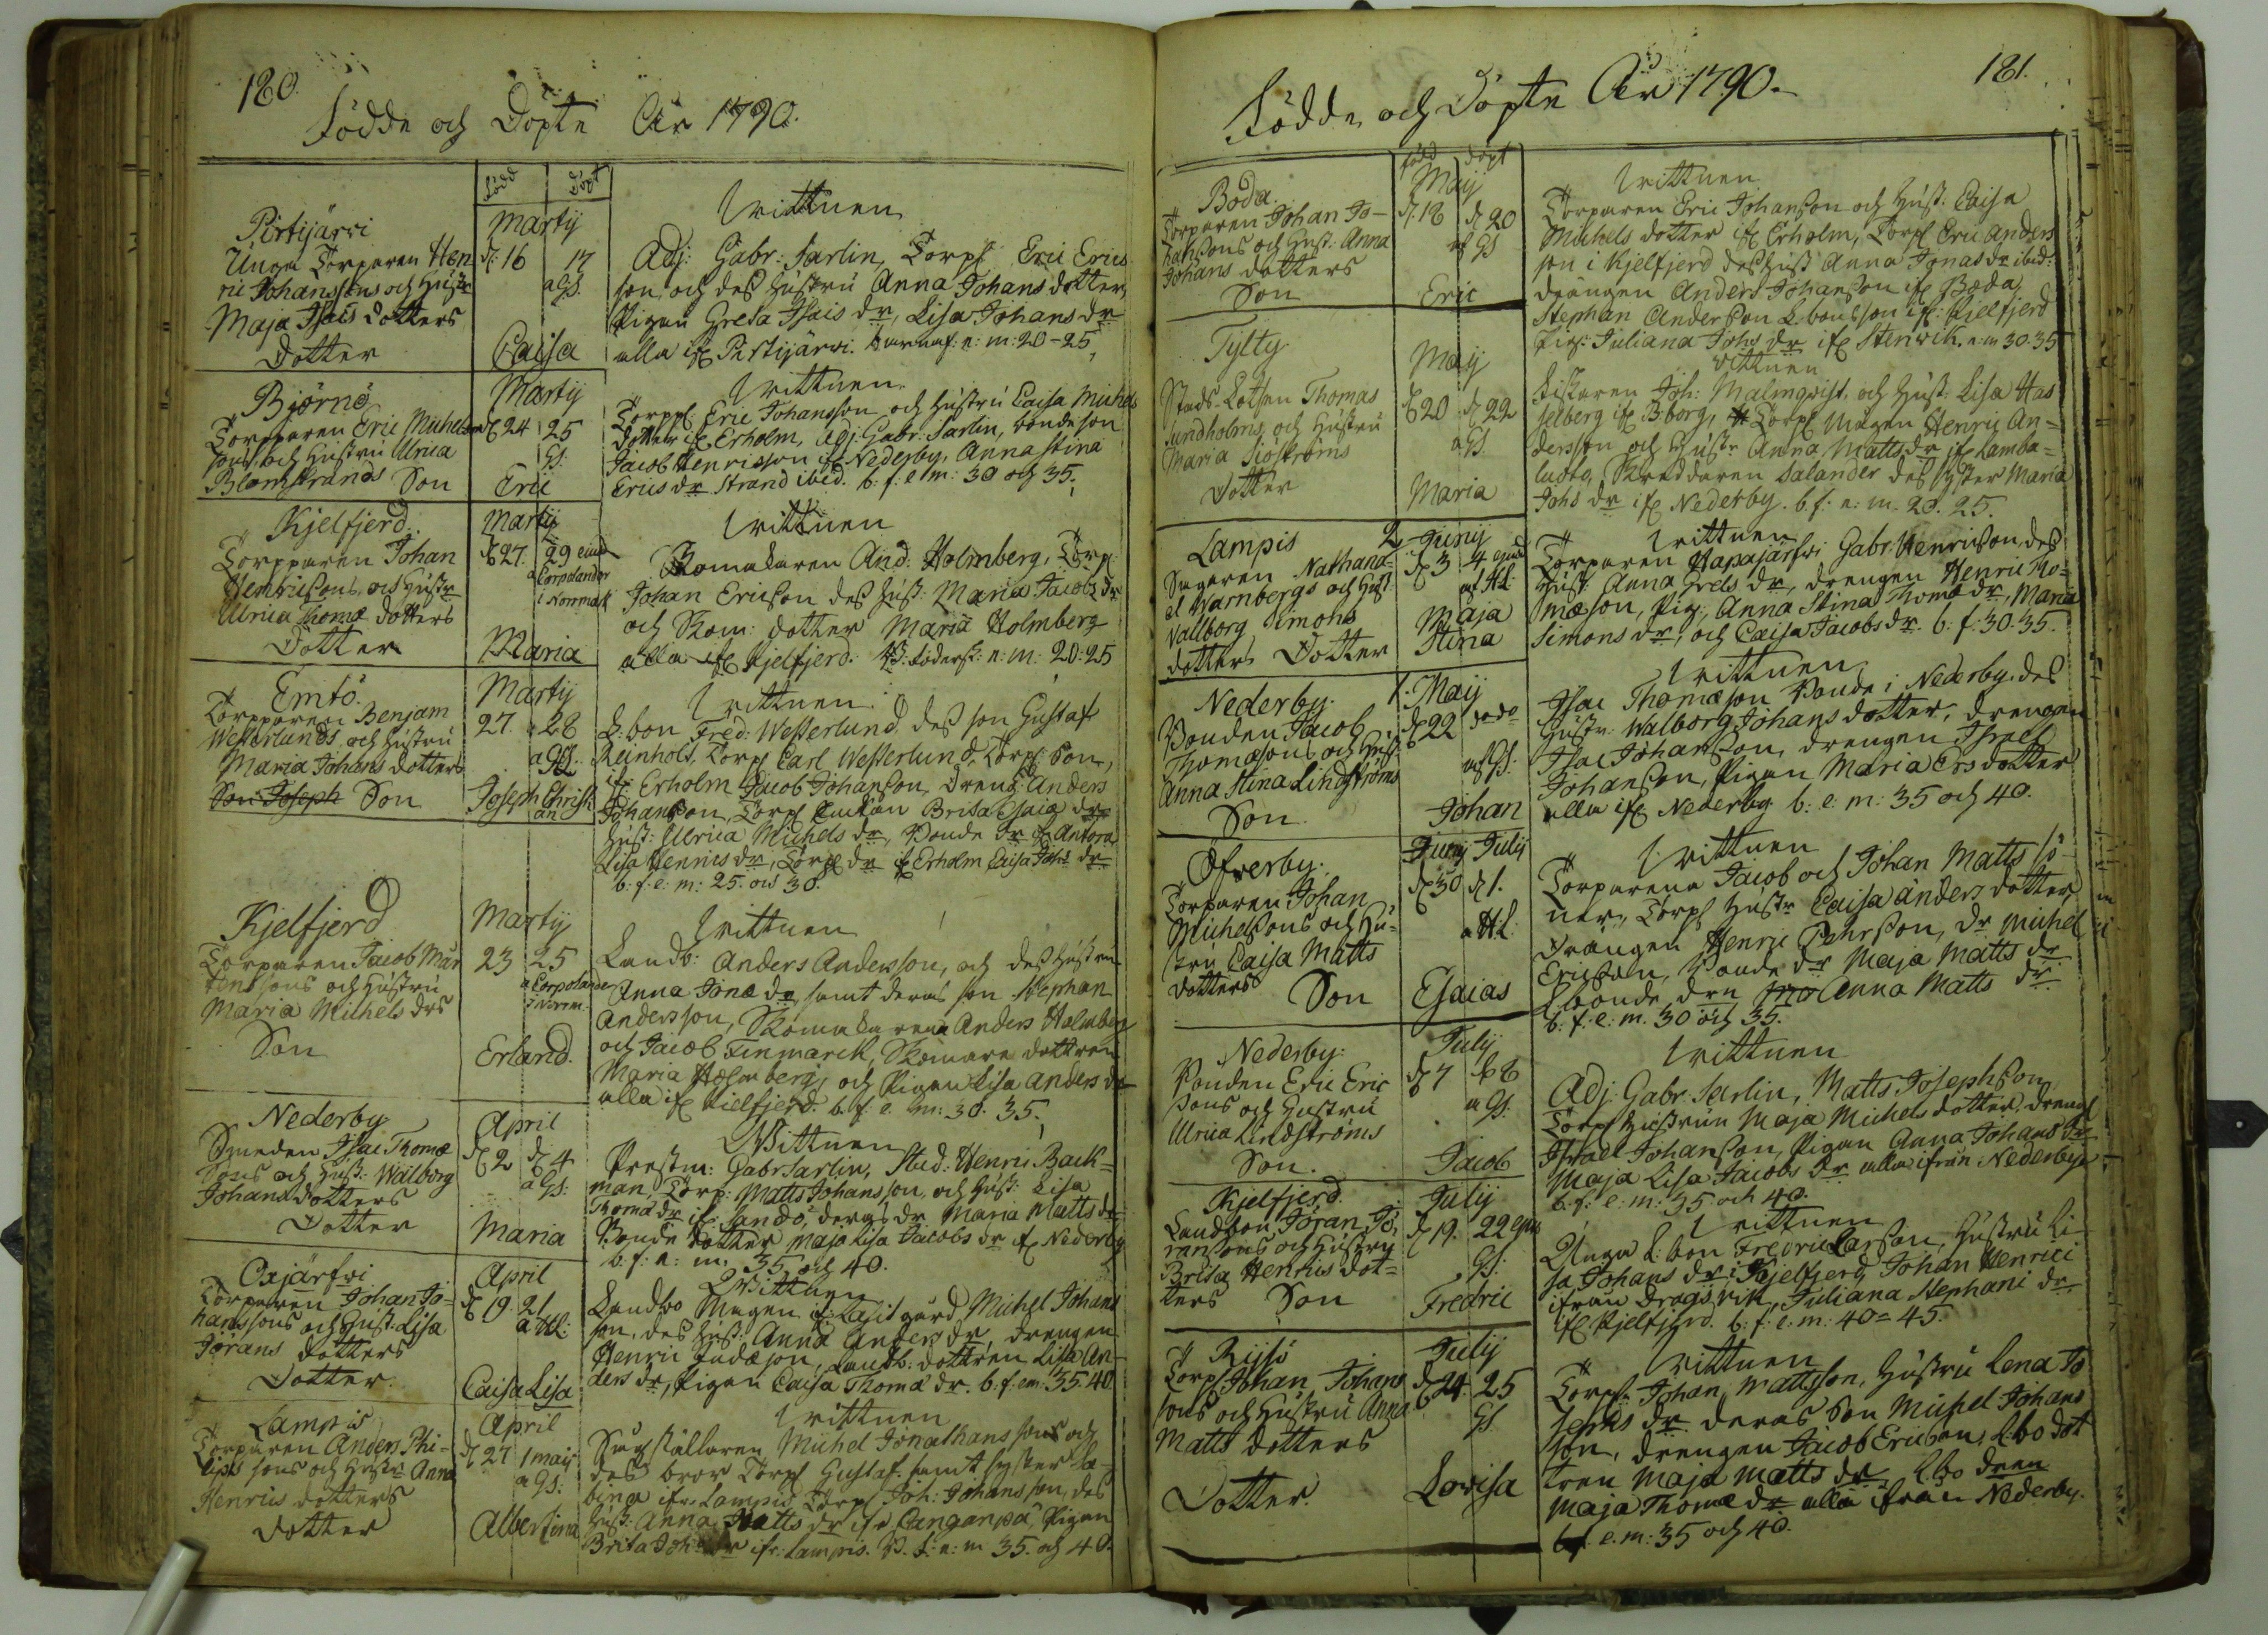 180.
Födde och Döpte Åhr 1790.
född döpt
Pirtijärvi
Martij
Wittnen
Unga Torparen Hen
ric Johanssons och Hustr
Maja Isais dotters
Dotter
d. 16 17
a GS.
Caisa
Adj: Gabr: Sarlin, Torp: Eric Erics
son och des hustru Anna Johans dotter,
Pigan Greta Isais dr, Lisa Johans dr
alla if Pirtijärvi. e: m: 20-25
Björnö
Martij
Wittnen
Torpparen Eric Michels
sons och hustru Ulrica
Blomstrands Son
d 24 25
GS:
Eric
Torpp: Eric Johansson och hustru Caisa Michels
dotter if Erholm, Adj: Gabr: Sarlin, bondeson
Jacob Henricsson if Nederby, Anna Stina
Erics dr Strand ibid. b: f: e: m: 30 och 35.
Kjelfjerd
Martij
Wittnen
Torpparen Johan
Henricsons, och Hustr
Ulrica Thomæ dotters
Dotter
d 27. 29
a Corpolander
i Norrmark
Maria
Skomakaren And: Holmberg, Torp
Johan Ericson des hust: Maria Jacobs dr
och Skom: dotter Maria Holmberg
alla if Kjelfjerd. e: m: 20: 25
Emtö
Martij
Wittnen
Torpparen Benjam
Westerlunds, och hustru
Maria Johans dotters
Son Joseph Son
27. 28
a GS.
Joseph Christi
an
L: bon Fred: Westerlund, des son Gustaf
Reinholt, Torp Carl Westerlund, Torp: Son,
if Erholm Jacob Johanson, dreng Anders
Johanson, Torp Enkan Brita Esaiæ dr
Hust: Ulrica Michels dr, Bonde dr if Antora
Lisa Henrics dr, Torp dr if Erholm Caisa Johs dr
b: f: e: m: 25. och 30.
Kjelfjerd
Martij
Wittnen
Torparen Jacob Mår
tenssons och hustru
Maria Michels drs
Son
23 25
a Corpolander
i Norrm.
Erland.
Landb: Anders Andersson, och des hustru
Anna Jonæ dr, samt deras son Stephan
Andersson, Skomakarena Anders Holmberg
och Jacob Finmarck, Skomare dottren
Maria Holmberg, och Pigan Lisa Anders dr
alla if Kielfjerd. b. f. e. m: 30. 35.
Nederby
April
Wittnen
Smeden Isac Thomæ
Sons och Hust: Walborg
Johans dotters
Dotter
d 2 d 4
a GS:
Maria
Prestm: Gabr Sarlin, Stud: Henric Back=
man, Torp: Matts Johansson, och Hust: Lisa
Thomæ dr if Sandö, deras dr Maria Matts dr
Bonde dotter Maja Lisa Jacobs dr if Nederby
b: f: e: m: 35 och 40.
Oxjärfvi
April
Wittnen
Torparen Johan Jo=
hanssons och Hust: Lisa
Jörans dotters
Dotter.
d 19. 21
a HL:
Caisa Lisa
Landbo Mågen if Lasisgård Michel Johans
son, des hust: Anna Anders dr, drengen
Henric Judæson, Landb: dottren Lisa An-
ders dr, Pigan Caisa Thomæ dr. b. f. em: 35. 40
Lampis
April
Wittnen
Torparen Anders Phi-
lips sons och Hustr Anna
Henrics dotters
Dotter
d 27 1 maij
a GS:
Albertina
Michel Jonathans sons och
des bror Torp Gustaf samt syster Sa-
bina ifr Lampis Torp Joh: Johansson, des
hust: Anna Matts dr ifr Panganpä, Pigan
Brita Joh: dr ifr: Lampis. B. f: e: m 35. och 40.
Födde och Döpte Åhr 1790.
181.
född döpt
Boda
Maij
Wittnen
Torparen Johan Jo-
hansons och Hust: Anna
Johans dotters
Son
d. 18 d 20
af GS
Eric
Torparen Eric Johanson och hust: Caisa
Michels dotter if Erholm, Torp Eric Anders
son i Kjelfjerd des hust Anna Jonas dr ibid:
drengen Anders Johanson if Boda,
Stephan Anderson L. bondson if: Kielfjerd
Pig: Juliana Johs dr if Stenwik. e: m 30. 35
Tylty
Maij
Wittnen
Stads Lotsen Thomas
Sundholms och hustru
Maria Siöströms
Dotter
d 20 d 22
a GS.
Maria
Fiskaren Joh: Malmqvist, och hust: Lisa Has
selberg if B:borg, Torp Mågen Henric An=
dersson och hustr Anna Matts dr if Lamba=
luoto, Skräddaren Salander des syster Maria
Johs dr if Nederby. b. f: e: m. 20. 25.
Lampis
2 Junij
Wittnen
Sågaren Nathana-
el Warnbergs och hust
Wallborg Simons
dotters Dotter
d 3 4
af HL:
Maja
Stina
Torparen Hapajärfwi Gabr. Henricson, des
Hust Anna Grels dr, drengen Henric Tho=
mæson, Pig: Anna Stina Thomæ dr, Maria
Simons dr, och Caisa Jacobs dr. b: f: 30. 35.
Nederby.
1. Maij
Wittnen
Bonden Jacob
Thomæsons och hust
Anna Stina Lindströms
Son
d 22 dodo
af GS:
Johan
Isac Thomæson Bonde i Nederby, des
hustr: Walborg Johans dotter, drengen
Isac Johanson, drengen Israel
Johanson, Pigan Maria Ers dotter
alla if Nederby b: e: m: 35 och 40.
Öfverby.
Junij Julij
Wittnen
Torparen Johan
Michelsons och hu=
stru Caisa Matts
dotters Son
d 30 d 1.
a HL:
Esaias
Torparena Jacob och Johan Matts sö-
ner, Torp hustr Caisa Anders dotter,
Drängen Henric Pehrson, Dr Michel
Ericson, Bonde dr Maja Matts dr
L bonde drn Anna Matts dr
b: f: e: m. 30 och 35.
Nederby:
Julij
Wittnen
Bonden Eric Eric
sons och hustru
Ulrica Lindströms
Son.
d 7 d 8
a GS:
Jacob
Adj: Gabr. Sarlin, Matts Josephson
Torp hustrun Maja Michels dotter, dreng
Israel Johanson, Pigan Anna Johans dr
Maja Lisa Jacobs dr alla ifrån Nederby
b. f: e: m: 35 och 40.
Kjelfjerd.
Julij
Wittnen
Landbon Jöran Jö,
ransons och hustru
Brita Henrics dot=
ters Son
d 19. 22
GS:
Fredric
Unga L: bon Fredric Larson, Hustru Li-
sa Johans dr i Kjelfjerd, Johan Henrici
ifrån Dragsvik, Juliana Stephani dr
if Kjelfjerd. b: f: e: m: 40=45.
Rijsö
Julij
Wittnen
Torp Johan Johans
sons och hustru Anna
Matts dotters
Dotter.
d 24. 25
GS
Lovisa
Torp: Johan Mattsson, hustru Lena Jo
sephs dr deras Son Michel Johans
son, drengen Jacob Ericson, L:bo dot
tren Maja Matts dr, L bo dren
Maja Thomæ dr alla ifrån Nederby.
b f: e. m: 35 och 40.